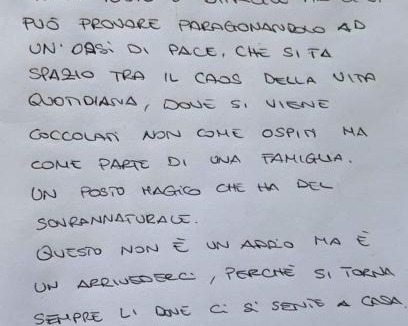 PUÒ PROVARE PARAGONANDOLO AD
UN'OASI DI PACE, CHE SI FA
SPAZIO TRA IL CAOS DELLA VITA
QUOTIDIANA, DOVE SI VIENE
COCCOLATI NON COME OSPITI MA
COME PARTE DI UNA FAMIGLIA.
UN POSTO MAGICO CHE HA DEL
SOVRANNATURALE.
QUESTO NON È UN ADDIO MA È
UN ARRIVEDERCI, PERCHÈ SI TORNA
SEMPRE LI DOVE CI SI SENTE A CASA.